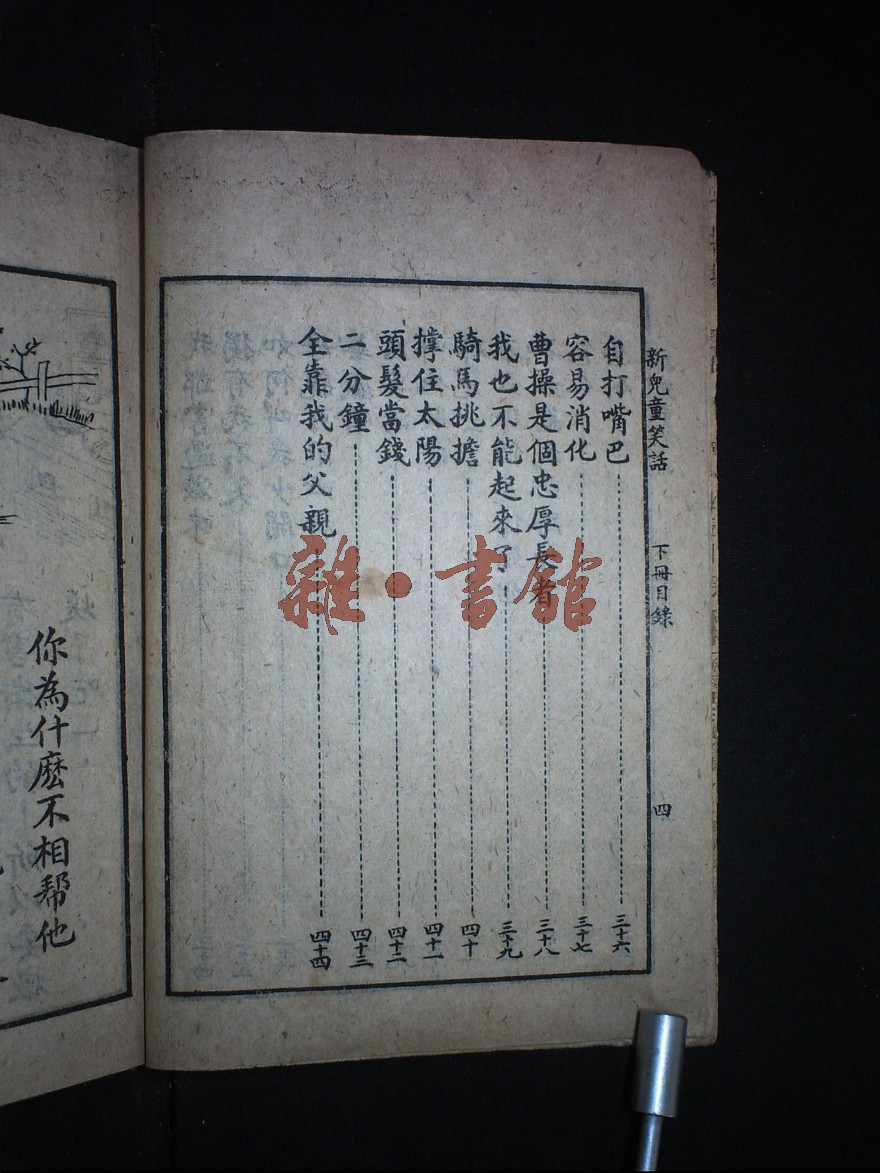 新兒童笑話 下冊目錄 四
自打嘴巴 三十六
容易消化 三十七
曹操是個忠厚長者 三十八
我也不能起來了 三十九
騎馬挑擔 四十
撐住太陽 四十一
頭髮當錢 四十二
二分鐘 四十三
全靠我的父親 四十四
雜·書館
你為什麽不相幫他